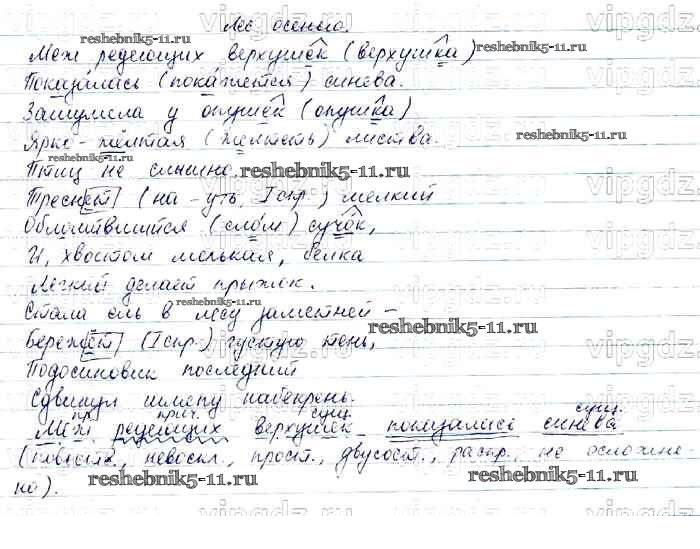 Лес осенью.
Меж редеющих верхушек (верхушка)
Показалась (покажется) синева.
Зашумела у опушек (опушка)
Ярко-жёлтая (желтеть) листва.
Птиц не слышно.
Треснет (на -уть, I спр.) мелкий
Обломившийся (слом) сучок,
И, хвостом мелькая, белка
Лёгкий делает прыжок.
Стала ель в лесу заметней –
Бережёт (I спр.) густую тень,
Подосиновик последний
Сдвинул шляпу набекрень.
пр. прич. сущ. сущ.
Меж редеющих верхушек показалась синева
(повеств., невоскл., прост., двусост., распр., не осложне-
но).
reshebnik5-11.ru
reshebnik5-11.ru
reshebnik5-11.ru
reshebnik5-11.ru
reshebnik5-11.ru
reshebnik5-11.ru
reshebnik5-11.ru
reshebnik5-11.ru
reshebnik5-11.ru
vipgdz.ru